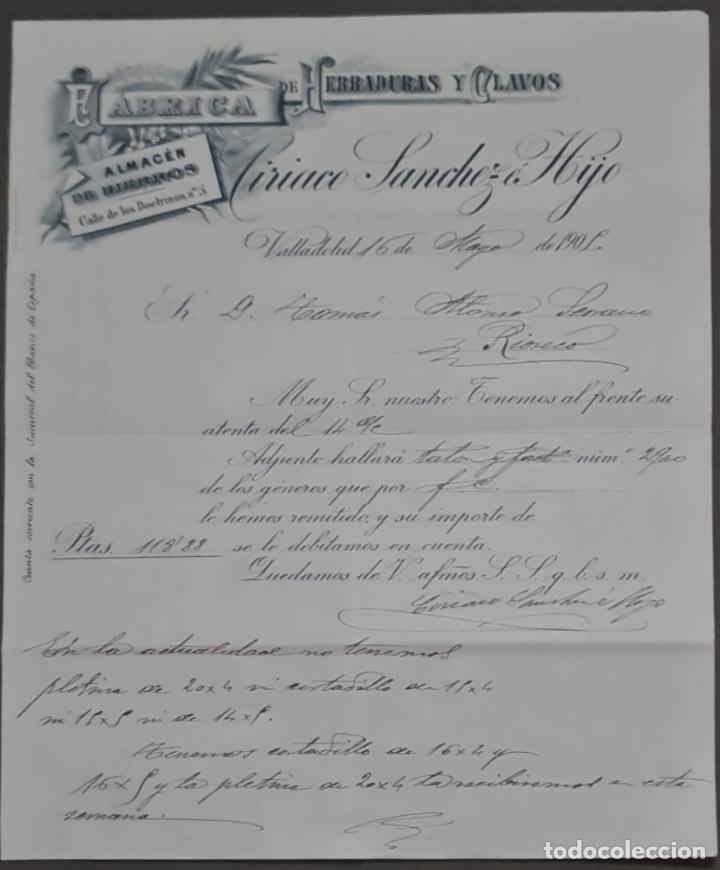 FÁBRICA DE HERRADURAS Y CLAVOS
ALMACÉN
DE HIERROS
Calle de los Doctrinos nº 5
Ciriaco Sanchez é Hijo
Valladolid 16 de Mayo de 1905.
Sr. D. Tomás Alonso Serrano
Rioseco
Muy Sr. nuestro: Tenemos al frente su
atenta del 14 a/c
Adjunto hallará talon y fact.ª núm.º
de los géneros que por f. c.
le hemos remitido, y su importe de
Ptas. 118'88 se le debitamos en cuenta.
Quedamos de V. afmos. S. S. q. b. s. m.
Ciriaco Sanchez é Hijo
En la actualidad no tenemos
pletina de 20x4 ni cortadillo de 15x4
ni 15x5 ni de 14x5.
Tenemos cortadillo de 16x4 y
16x5 y la pletina de 20x4 la recibiremos en esta
semana.
Cuenta corriente con la Sucursal del Banco de España
todocoleccion.net